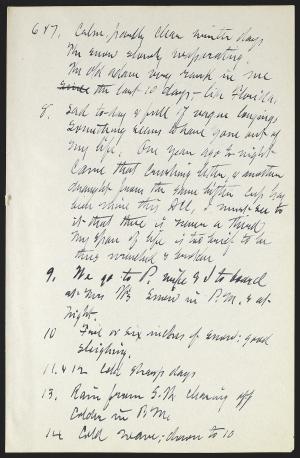 6 & 7. Calm, partly clear winter days
The snow slowly evaporating.
The old adam very rank in me
since the last 10 days,- like Florida.
8. Sad to-day & full of vague longings
Something seems to have gone out of
my life. One year ago to-night
came that crushing letter, & another
draught from the same bitter cup has
been mine this Dec, I must see to
it that there is never a third,
My span of life is too brief to be
thus wounded & broken
9. We go to P. wife & I to board
at Mrs
Snow in P.M. & at
night.
10 Five or six inches of snow; good
sleighing.
11. & 12 Cold sharp days
13. Rain from S.W. clearing off
colder in P.M.
14 Cold wave; down to 10